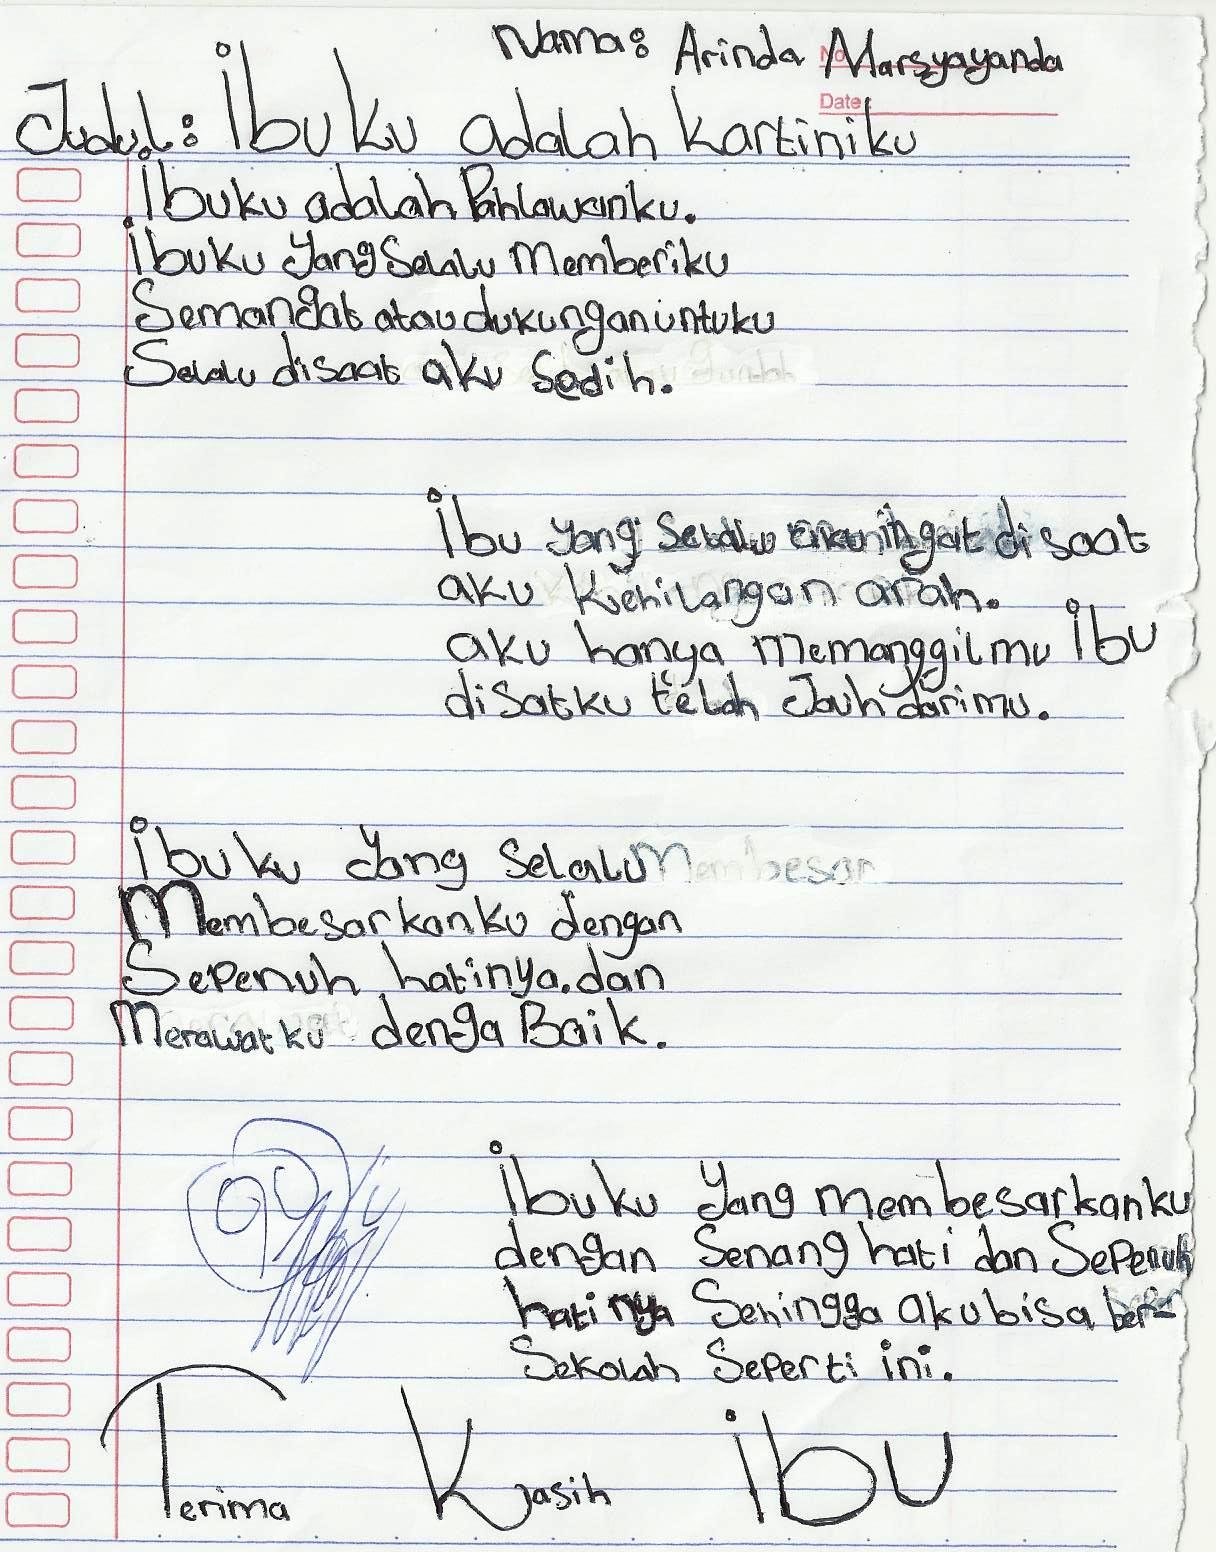 Nama: Arinda Marsyayanda
No
Date:
Judul: Ibuku adalah kartiniku
Ibuku adalah Pahlawanku.
Ibuku Yang Selalu Memberiku
Semangat atau dukungan untuku
Selalu disaat aku Sedih.
Ibu yang Selalu aku ingat disaat
aku Kehilangan arah.
aku hanya memanggilmu Ibu
disatku telah Jauh darimu.
Ibuku Yang Selalu Membesar
Membesarkanku dengan
Sepenuh hatinya. dan
Merawatku denga Baik.
Ibuku Yang membesarkanku
dengan Senang hati dan Sepenuh
hatinya Sehingga aku bisa ber-
Sekolah Seperti ini.
Terima Kasih ibu